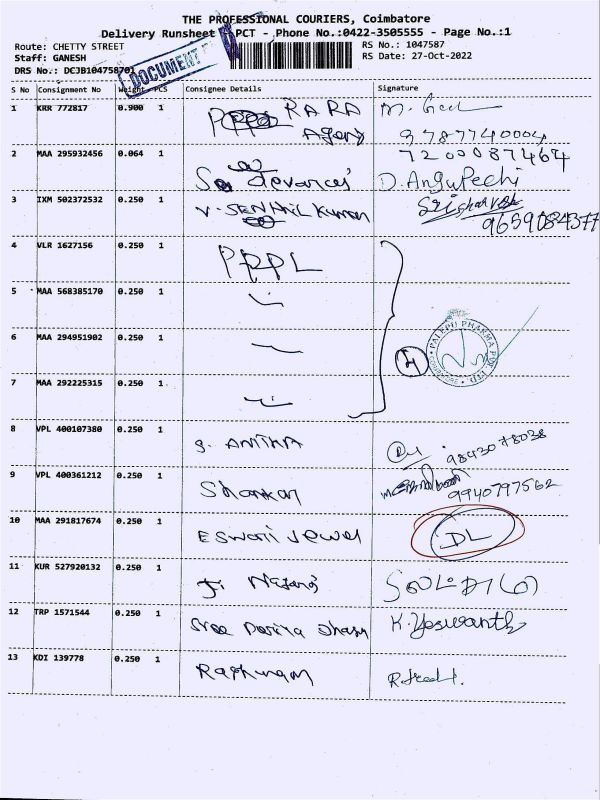 THE PROFESSIONAL COURIERS, Coimbatore
Delivery Runsheet PCT - Phone No.:0422-3505555 - Page No.:1
Route: CHETTY STREET
RS No.: 1047587
Staff: GANESH
RS Date: 27-Oct-2022
DRS No.: DCJB104758701
DOCUMENT
S No Consignment No Weight PCS Consignee Details Signature
1 KRR 772817 0.900 1 RARA
Agency 9787740004
2 MAA 295932456 0.064 1 7200087464
devaraj D. Angupechi
3 IXM 502372532 0.250 1 V. SENTHIL Kumar
9659084377
4 VLR 1627156 0.250 1 PPPL
5 MAA 568385170 0.250 1
6 MAA 294951902 0.250 1
4
PALEPU PHARMA PVT. LTD.
COIMBATORE
7 MAA 292225315 0.250 1
8 VPL 400107380 0.250 1 S. ANITHA 9843078038
9 VPL 400361212 0.250 1 Shankar 9940797562
10 MAA 291817674 0.250 1 ESWari Jewel DL
11 KUR 527920132 0.250 1
12 TRP 1571544 0.250 1 Sree K. Yeswanth
13 KDI 139778 0.250 1